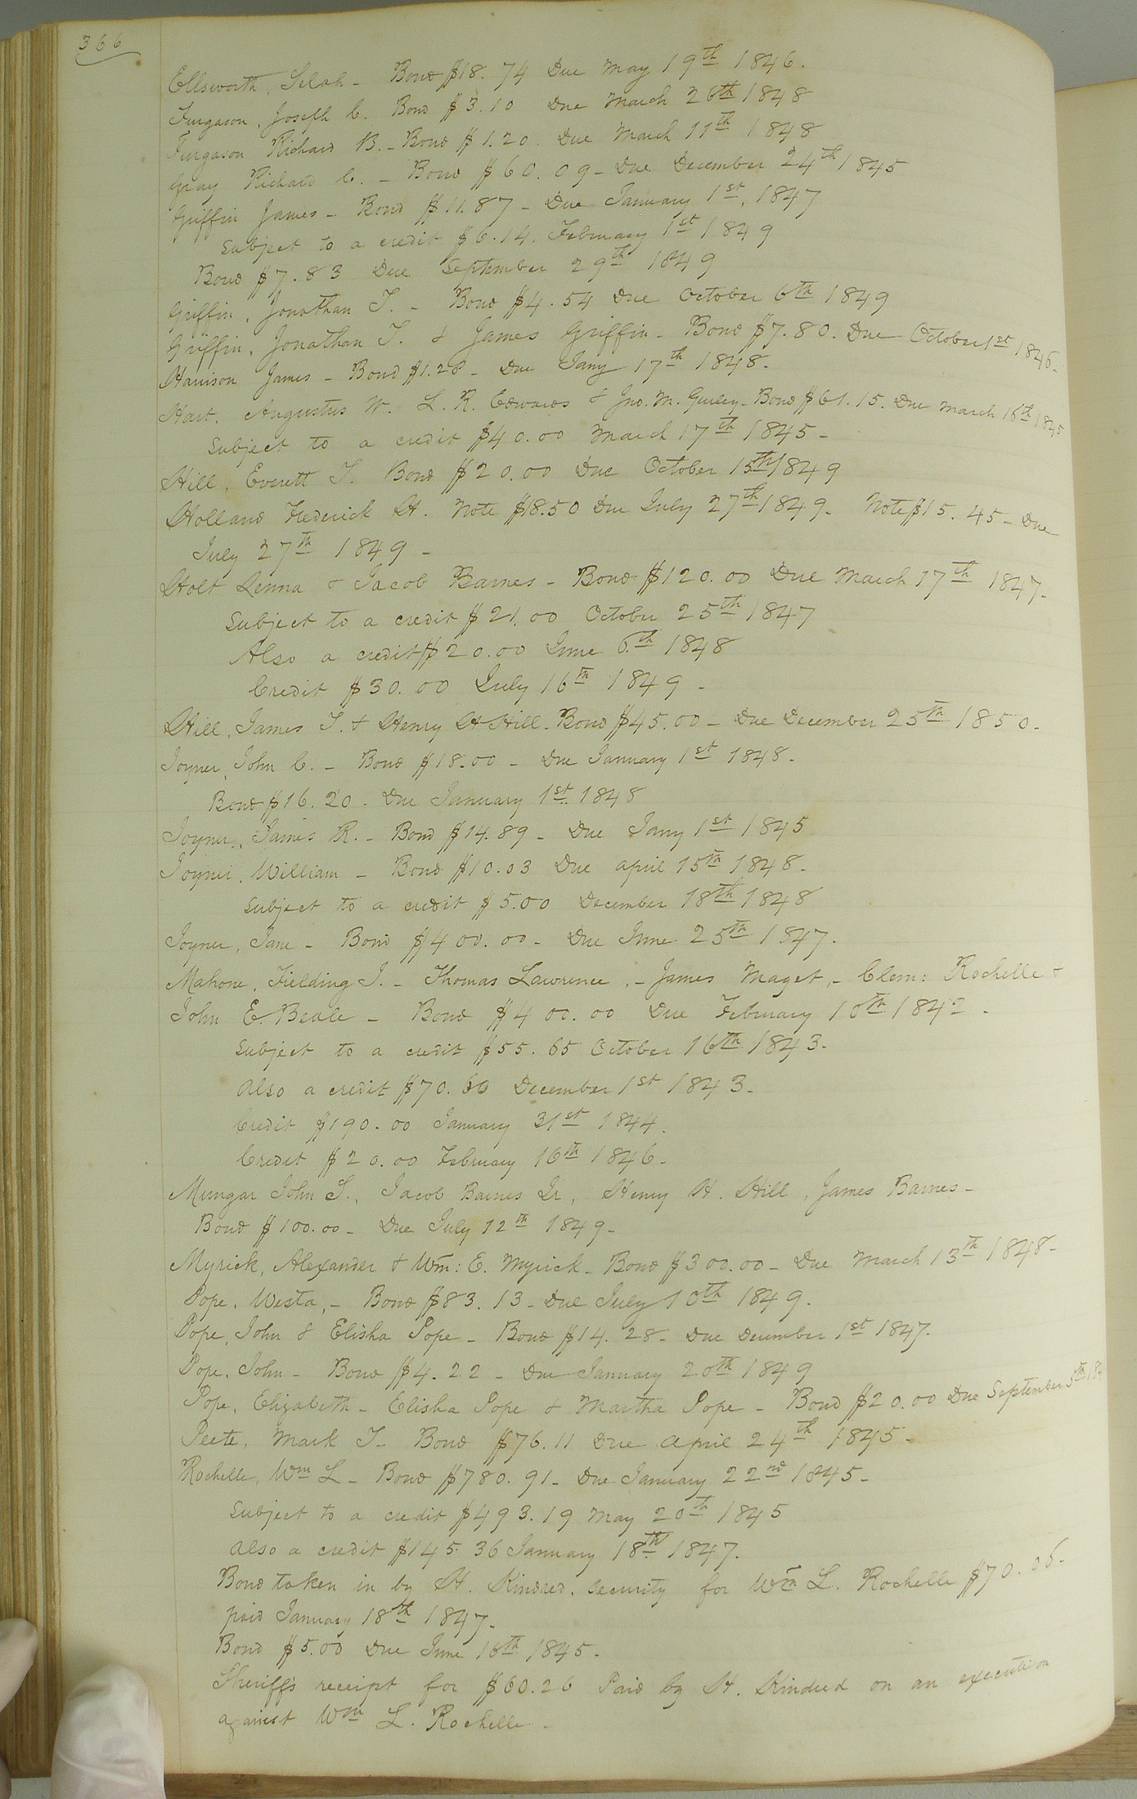 366
Ellsworth, Selah - Bond $18.74 Due May 19th 1846.
Furgason, Joseph C. Bond $3.10 Due March 26th 1848
Furgason Richard B. - Bond $1.20. Due March 11th 1848
Gray Richard C. - Bond $60.09 - Due December 24th 1845
Griffin James - Bond $11.87 - Due January 1st, 1847
Subject to a credit $6.14. February 1st 1849
Bond $7.83 Due September 29th 1849
Griffin, Jonathan T. - Bond $4.54 Due October 6th 1849
Griffin, Jonathan T. & James Griffin - Bond $7.80. Due October 1st 1846 -
Harrison James - Bond $1.28 - Due Jany 17th 1848.
Hart, Augustus W. L. R. Edwards & Jno. M. Gurley - Bond $61.15. Due March 16th 1845
Subject to a credit $40.00 March 17th 1845 -
Hill, Everett T. Bond $20.00 Due October 15th 1849
Holland Frederick H. Note $18.50 Due July 27th 1849 - Note $15.45 - Due
July 27th 1849 -
Holt Lenna & Jacob Barnes - Bond $120.00 Due March 17th 1847 -
Subject to a credit $21.00 October 25th 1847
Also a credit $20.00 June 6th 1848
Credit $30.00 July 16th 1849 -
Hill, James T. & Henry H Hill - Bond $45.00 - Due December 25th 1850 -
Joyner, John C. - Bond $18.00 - Due January 1st 1848 -
Bond $16.20. Due January 1st 1848
Joyner, James R. - Bond $14.89 - Due Jany 1st 1845
Joyner, William - Bond $10.03 Due April 15th 1848 -
Subject to a credit $5.00 December 18th 1848
Joyner, Jane - Bond $400.00 - Due June 25th 1847.
Mahone, Fielding J. - Thomas Lawrence, - James Maget, - Clem: Rochelle &
John E. Beale - Bond $400.00 Due February 10th 1842 -
Subject to a credit $55.65 October 16th 1843 -
Also a credit $70.60 December 1st 1843 -
Credit $190.00 January 31st 1844.
Credit $20.00 February 16th 1846 -
Mungar John S., Jacob Barnes Jr, Henry H. Hill, James Barnes -
Bond $100.00 - Due July 12th 1849 -
Myrick, Alexander & Wm: E. Myrick - Bond $300.00 - Due March 13th 1848 -
Pope, Westa, - Bond $83.13 - Due July 10th 1849.
Pope, John & Elisha Pope - Bond $14.28 - Due December 1st 1847.
Pope, John - Bond $4.22 - Due January 20th 1849
Pope, Elizabeth - Elisha Pope & Martha Pope - Bond $20.00 Due September 5th 184
Peete, Mark T - Bond $76.11 Due April 24th 1845 -
Rochelle, Wm L - Bond $780.91 - Due January 22nd 1845 -
Subject to a credit $493.19 May 20th 1845
Also a credit $145.36 January 18th 1847.
Bond taken in by H. Kindred, Security for Wm L. Rochelle $70.06 -
paid January 18th 1847 -
Bond $5.00 Due June 16th 1845 -
Sheriffs receipt for $60.26 Paid by H. Kindred on an execution
against Wm L. Rochelle -